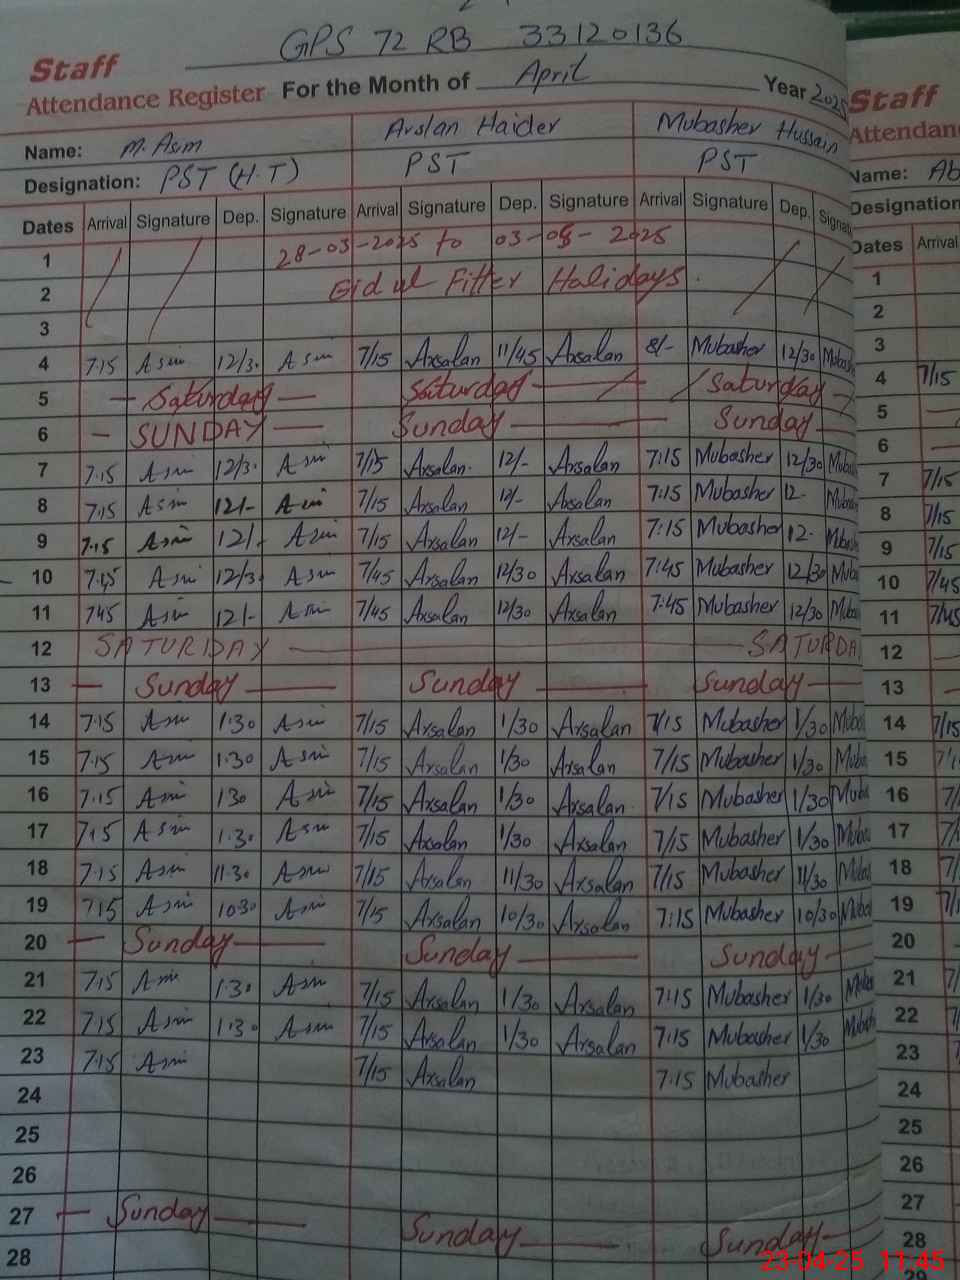 GPS 72 RB 33120136
Staff
Attendance Register For the Month of April Year 2025
Name: M. Asim Arslan Haider Mubasher Hussain
Designation: PST (H.T) PST PST
Dates Arrival Signature Dep. Signature Arrival Signature Dep. Signature Arrival Signature Dep. Signat
1 28-03-2025 to 03-05-2025
2 Eid ul Fitter Halidays.
3
4 7.15 Asim 12/3. Asim 7/15 Arsalan 11/45 Arsalan 8/- Mubasher 12/30 Mubash
5 — Saturday — Saturday — Saturday —
6 — SUNDAY — Sunday — Sunday —
7 7.15 Asim 12/3. Asim 7/15 Arsalan. 12/- Arsalan 7:15 Mubasher 12/30 Muba
8 7.15 Asim 12/- Asim 7/15 Arsalan 12/- Arsalan 7:15 Mubasher 12- Mubas
9 7.15 Asim 12/. Asim 7/15 Arsalan 12/- Arsalan 7:15 Mubasher 12- Mubas
10 7.45 Asim 12/3. Asim 7/45 Arsalan 12/30 Arsalan 7:45 Mubasher 12/30 Muba
11 745 Asim 12/- Asim 7/45 Arsalan 12/30 Arsalan 7:45 Mubasher 12/30 Muba
12 SATURDAY — SATURDA
13 — Sunday — Sunday — Sunday —
14 7.15 Asim 1.30 Asim 7/15 Arsalan 1/30 Arsalan 7/15 Mubasher 1/30 Muba
15 7.15 Asim 1.30 Asim 7/15 Arsalan 1/30 Arsalan 7/15 Mubasher 1/30 Muba
16 7.15 Asim 130 Asim 7/15 Arsalan 1/30 Arsalan. 7/15 Mubasher 1/30 Muba
17 7.15 Asim 1.3. Asim 7/15 Arsalan 1/30 Arsalan 7/15 Mubasher 1/30 Muba
18 7.15 Asim 11.30 Asim 7/15 Arsalan 11/30 Arsalan 7/15 Mubasher 11/30 Muba
19 7.15 Asim 1030 Asim 7/15 Arsalan 10/30 Arsalan 7:15 Mubasher 10/30 Muba
20 — Sunday — Sunday — Sunday —
21 7.15 Asim 1.3. Asim 7/15 Arsalan 1/30 Arsalan 7:15 Mubasher 1/30 Mubas
22 7.15 Asim 1.30 Asim 7/15 Arsalan 1/30 Arsalan 7:15 Mubasher 1/30 Mubash
23 7.15 Asim 7/15 Arsalan 7:15 Mubasher
24
25
26
27 — Sunday — Sunday — Sunday —
28
Staff
Attendan
Name: Ab
Designation
Dates Arrival
1
2
3
4 7/15
5
6
7 7/15
8 7/15
9 7/15
10 7/45
11 7/45
12
13
14 7/15
15
16
17
18
19
20
21
22
23
24
25
26
27
28
29
23-04-25 11:45